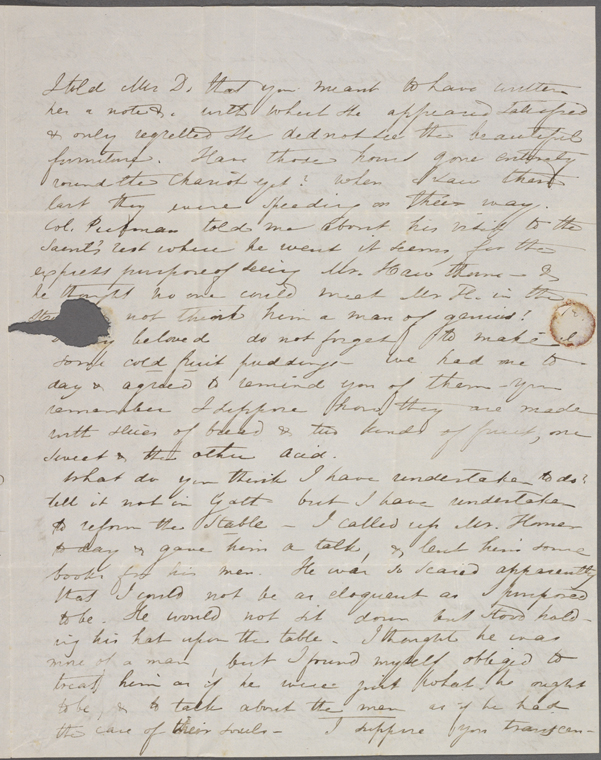 I told Mrs D. that you meant to have written
her a note &. with which she appeared satisfied
& only regretted she did not see the beautiful
furniture. Have those horses gone entirely
round the Chariot yet? When I saw them
last they were speeding on their way.
Col. told me about his visit to the
Saint's rest where he went it seems for the
express purpose of seeing Mr. Hawthorne - &
he thought no one could meet Mr. H. in the
not think him a man of genius!
beloved do not forget to make
some cold fruit puddings - we had one to
day & agreed to remind you of them - You
remember I suppose how they are made
with slices of bread & two kinds of fruit, one
sweet & the other acid.
What do you think I have undertaken to do?
tell it not in Gath but I have undertaken
to reform the Stable - I called up Mr. Homer
to day & gave him a talk, & lent him some
books for his men. He was so scared apparently
that I could not be as eloquent as I purposed
to be. He would not sit down but stood hold-
ing his hat upon the table - I thought he was
more of a man, but I found myself obliged to
treat him as if he were just what he ought
to be, & to talk about the men as if he had
the care of their souls - I suppose you transcen-